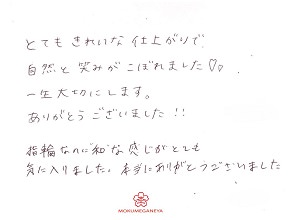 とてもきれいな仕上がりで、
自然と笑みがこぼれました♡♡
一生大切にします。
ありがとうございました!!
指輪なのに"和"な感じがとても
気に入りました。本当にありがとうございました
MOKUMEGANEYA